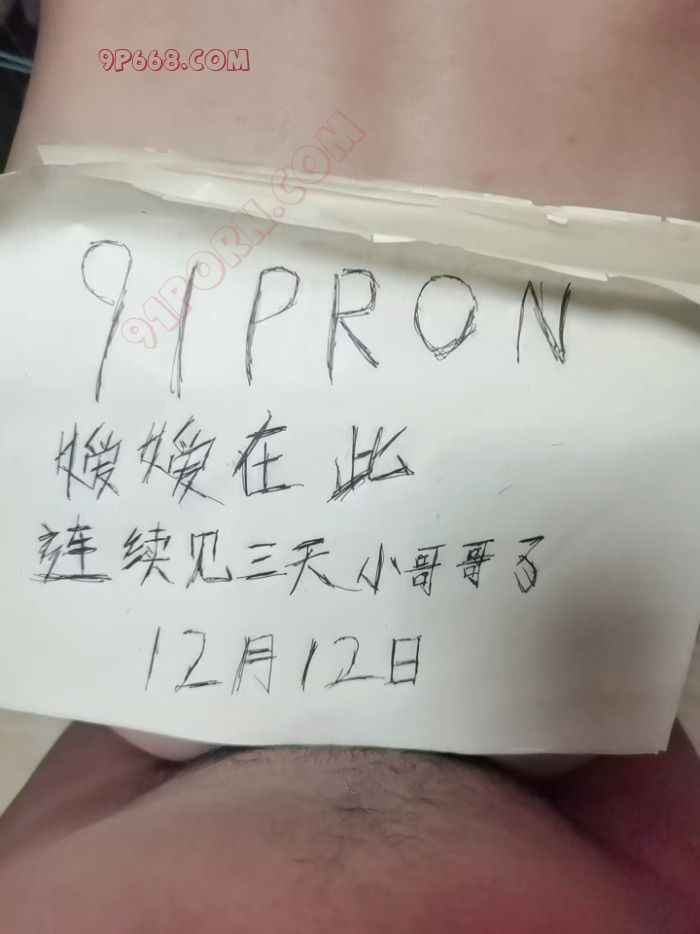 9P668.COM
91PORN.COM
91PRON
嫒嫒在此
连续见三天小哥哥了
12月12日